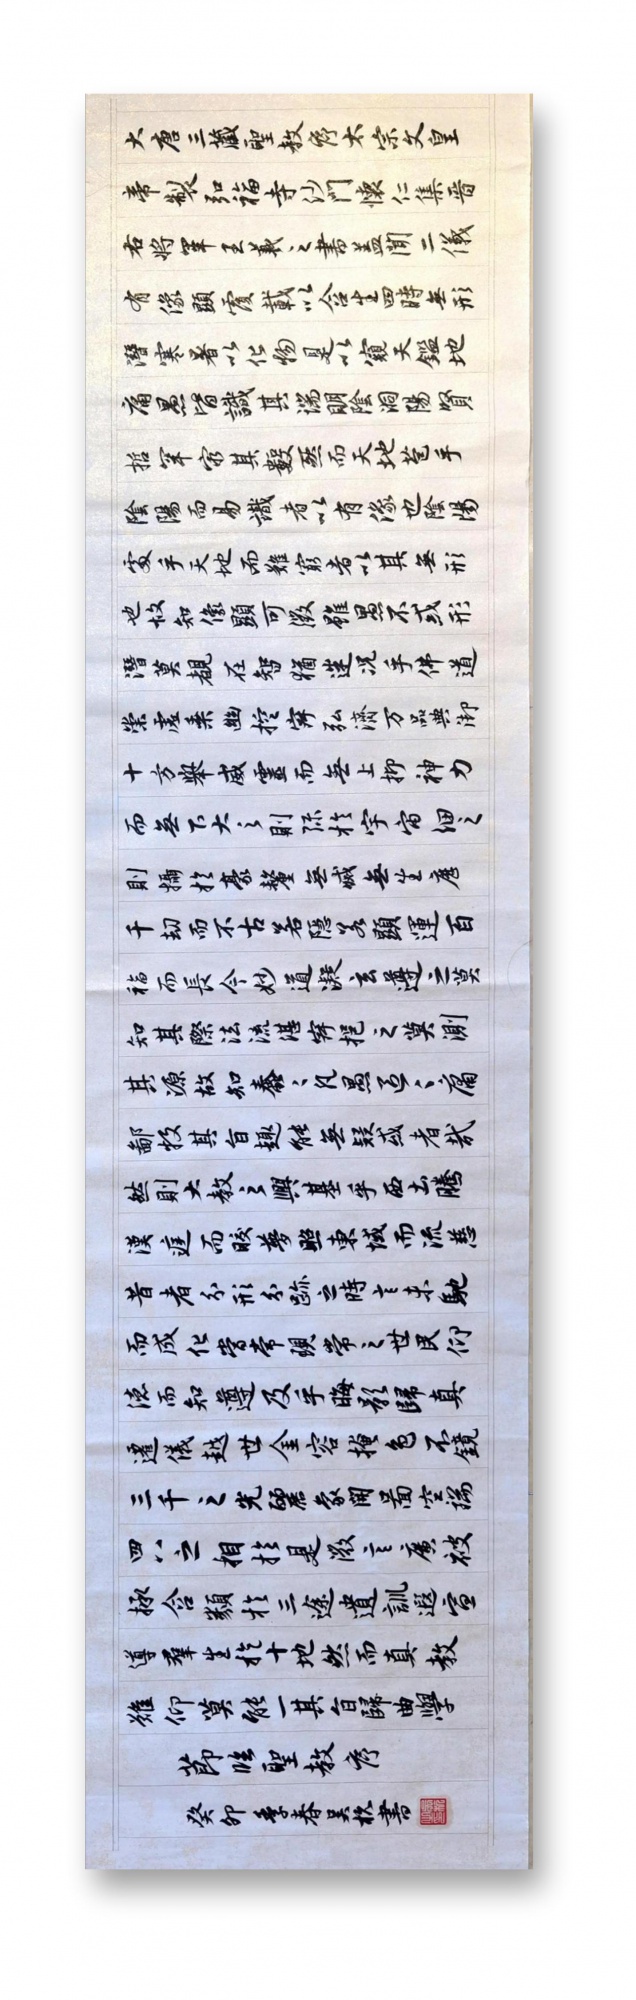 大唐三藏聖教序太宗文皇
帝製弘福寺沙門懷仁集晉
右將軍王羲之書蓋聞二儀
有像顯覆載以含生四時無形
潛寒暑以化物是以窺天鑑地
庸愚皆識其端明陰洞陽賢
哲罕窮其數然而天地苞乎
陰陽而易識者以有像也陰陽
處乎天地而難窮者以其無形
也故知像顯可徵雖愚不或形
潛莫覩在智猶迷況乎佛道
崇虛乘幽控寂弘濟万品典御
十方舉威靈而無上抑神力
而無下大之則彌於宇宙細之
則攝於豪釐無滅無生歷
千劫而不古若隱若顯運百
福而長今妙道凝玄遵之莫
知其際法流湛寂挹之莫測
其源故知蠢〻凡愚區〻庸
鄙投其旨趣能無疑或者哉
然則大教之興基乎西土騰
漢庭而皎夢照東域而流慈
昔者分形分跡之時言未馳
而成化當常現常之世民仰
德而知遵及乎晦影歸真
遷儀越世金容掩色不鏡
三千之光麗象開圖空端
四八之相於是微言廣被
拯含類於三途遺訓遐宣
導羣生於十地然而真教
難仰莫能一其旨歸曲學
節臨聖教序
癸卯季春吳書